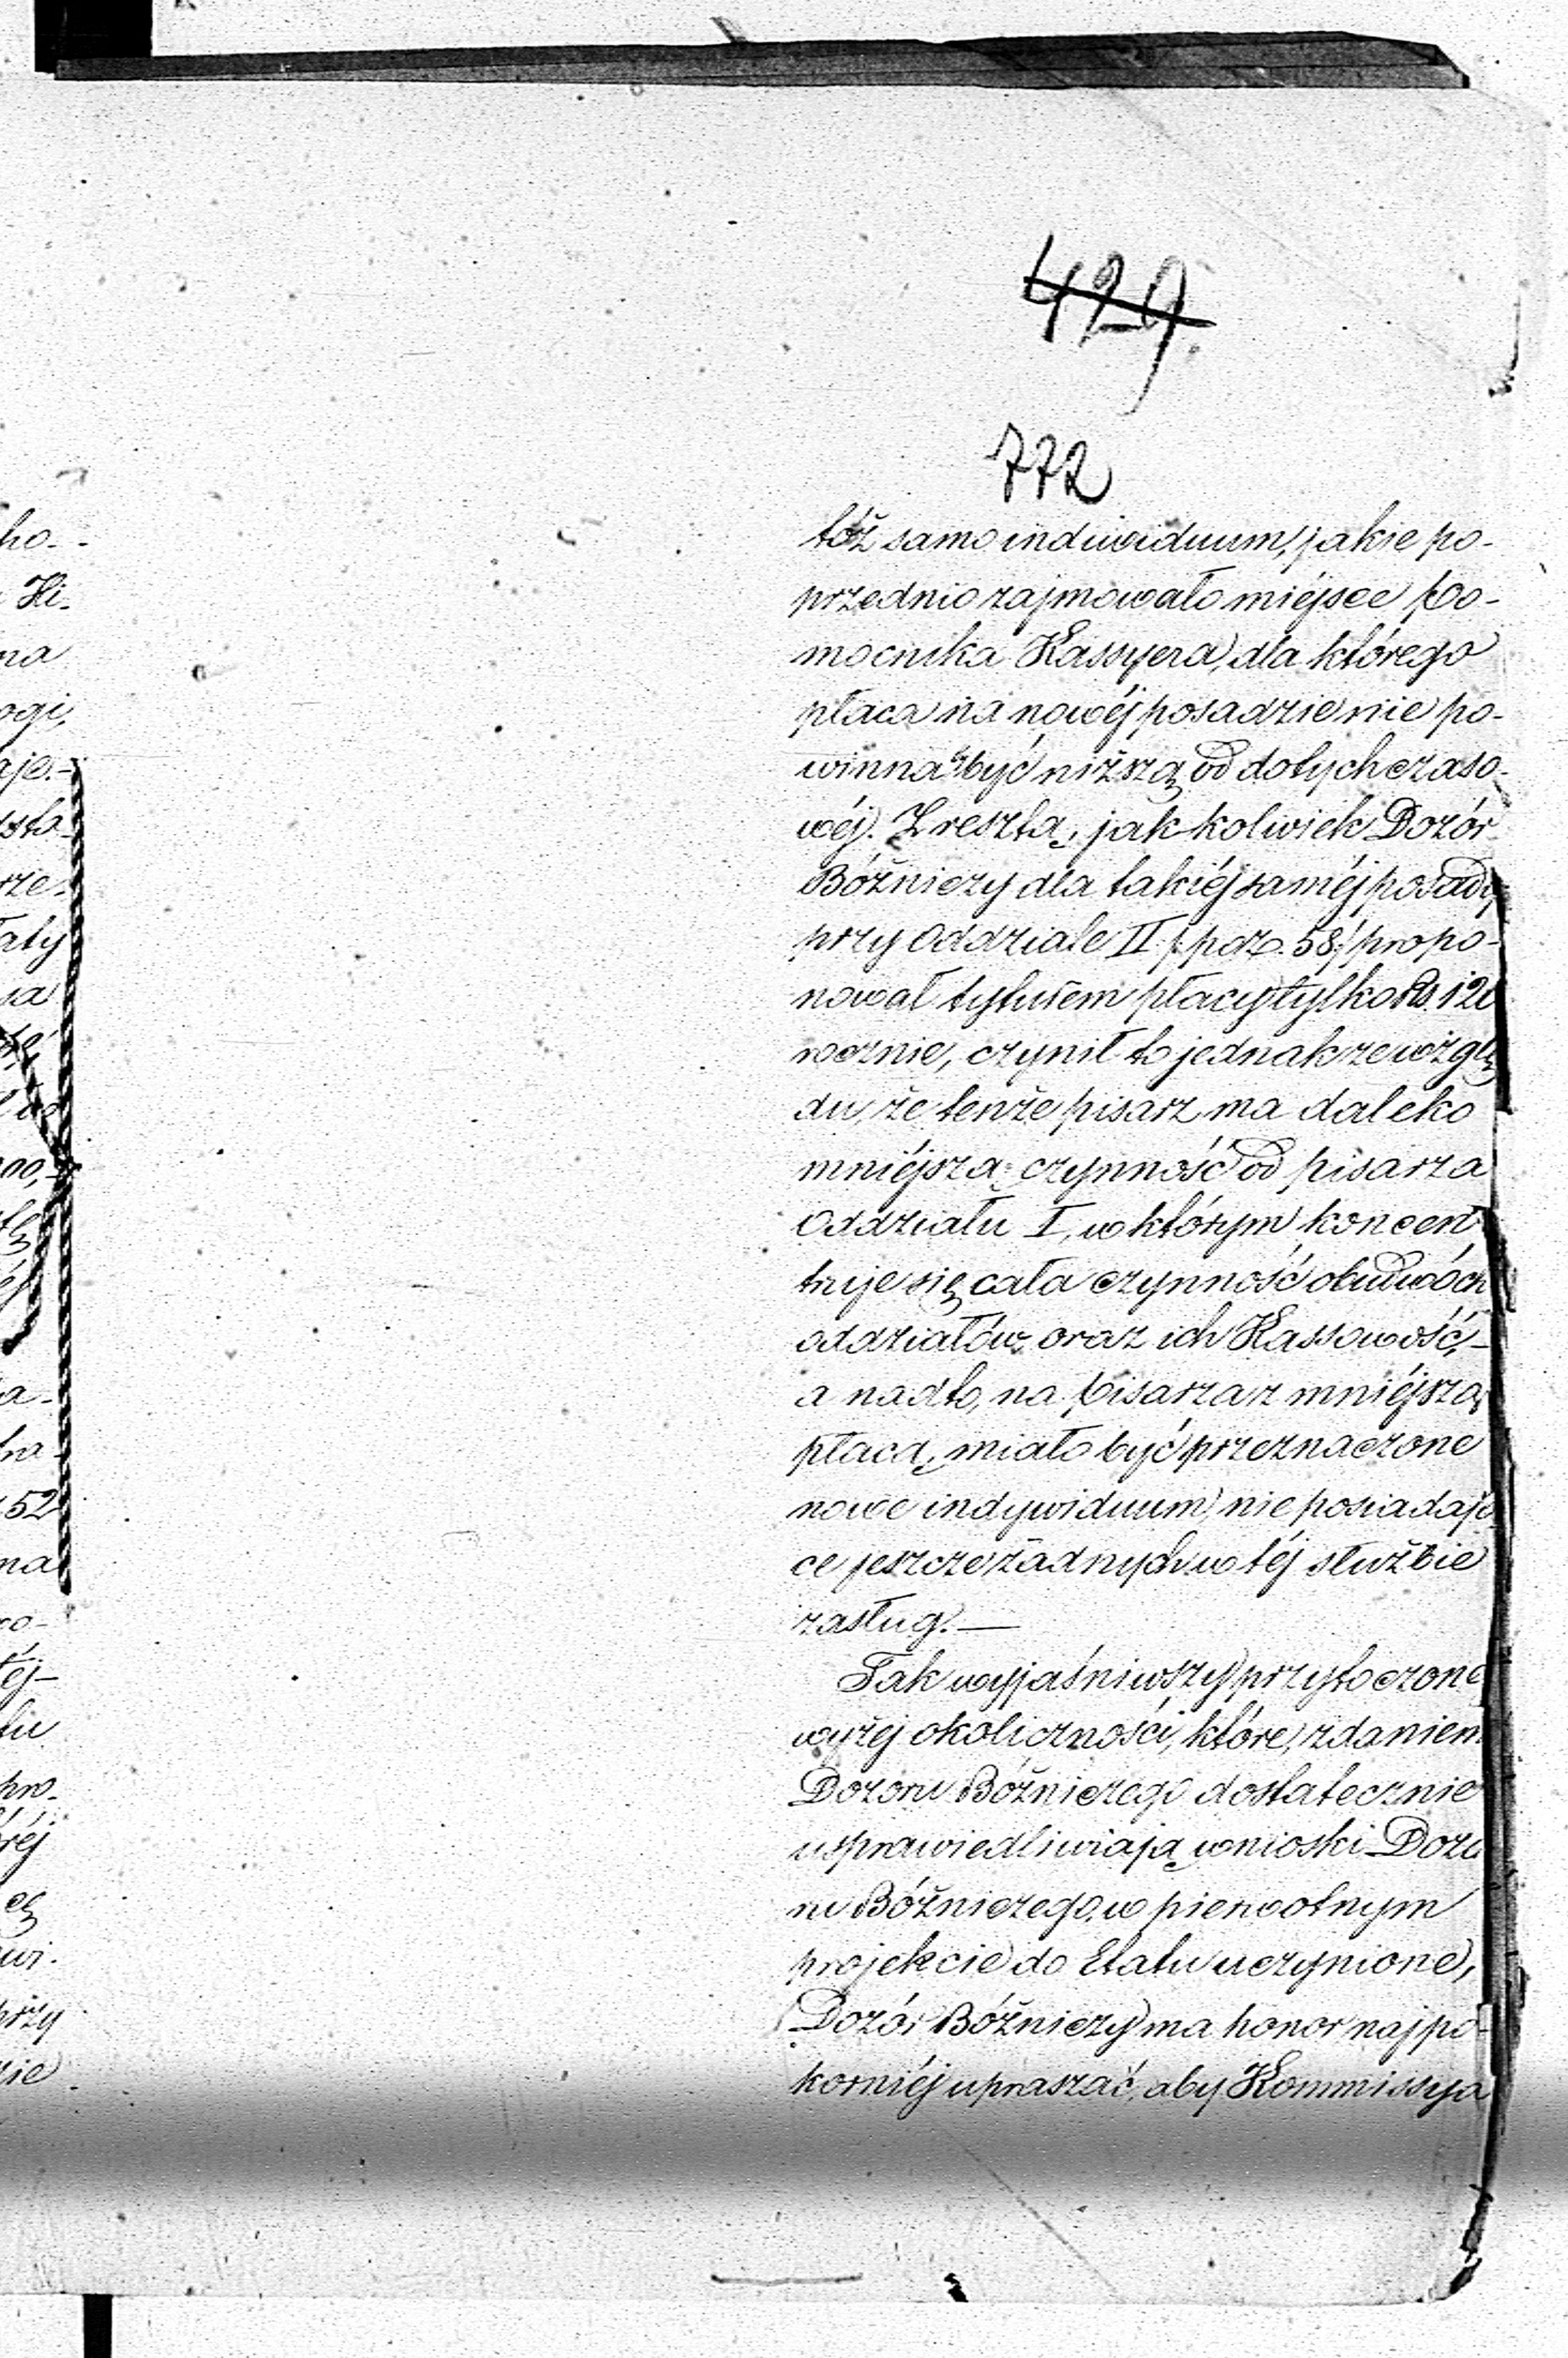 429.
772
tóż samo indiwiduum, jakie po-
przednio zajmowało miéjsce Po-
mocnika Kassyera, dla którego
płaca na nowéj posadzie nie po-
winna być niższą od dotychczaso-
wéj. Zresztą, jakkolwiek Dozór
Bóżniczy dla takiéj saméj posady
przy Oddziale II /:poz. 58:/ propo-
nował tytułem płacy tylko Rs. 120
rocznie, czynił to jednak ze wzglę
du, że tenże pisarz ma daleko
mniéjszą czynność od pisarza
Oddziału I, w którym koncen
truje się cała czynność obudwóch
oddziałów oraz ich Kassowość,-
a nadto, na Pisarza z mniéjszą
płacą, miało być przeznaczone
nowe indywiduum, nie posiadają
ce jeszcze żadnych w téj służbie
zasług.—
Tak wyjaśniwszy przytoczone
wyżej okoliczności, które, zdaniem
Dozoru Bóżniczego dostatecznie
usprawiedliwiają wnioski Dozo
ru Bóżniczego, w pierwotnym
projekcie do Etatu uczynione,
Dozór Bóżniczy ma honor najpo-
korniéj upraszać, aby Kommissya